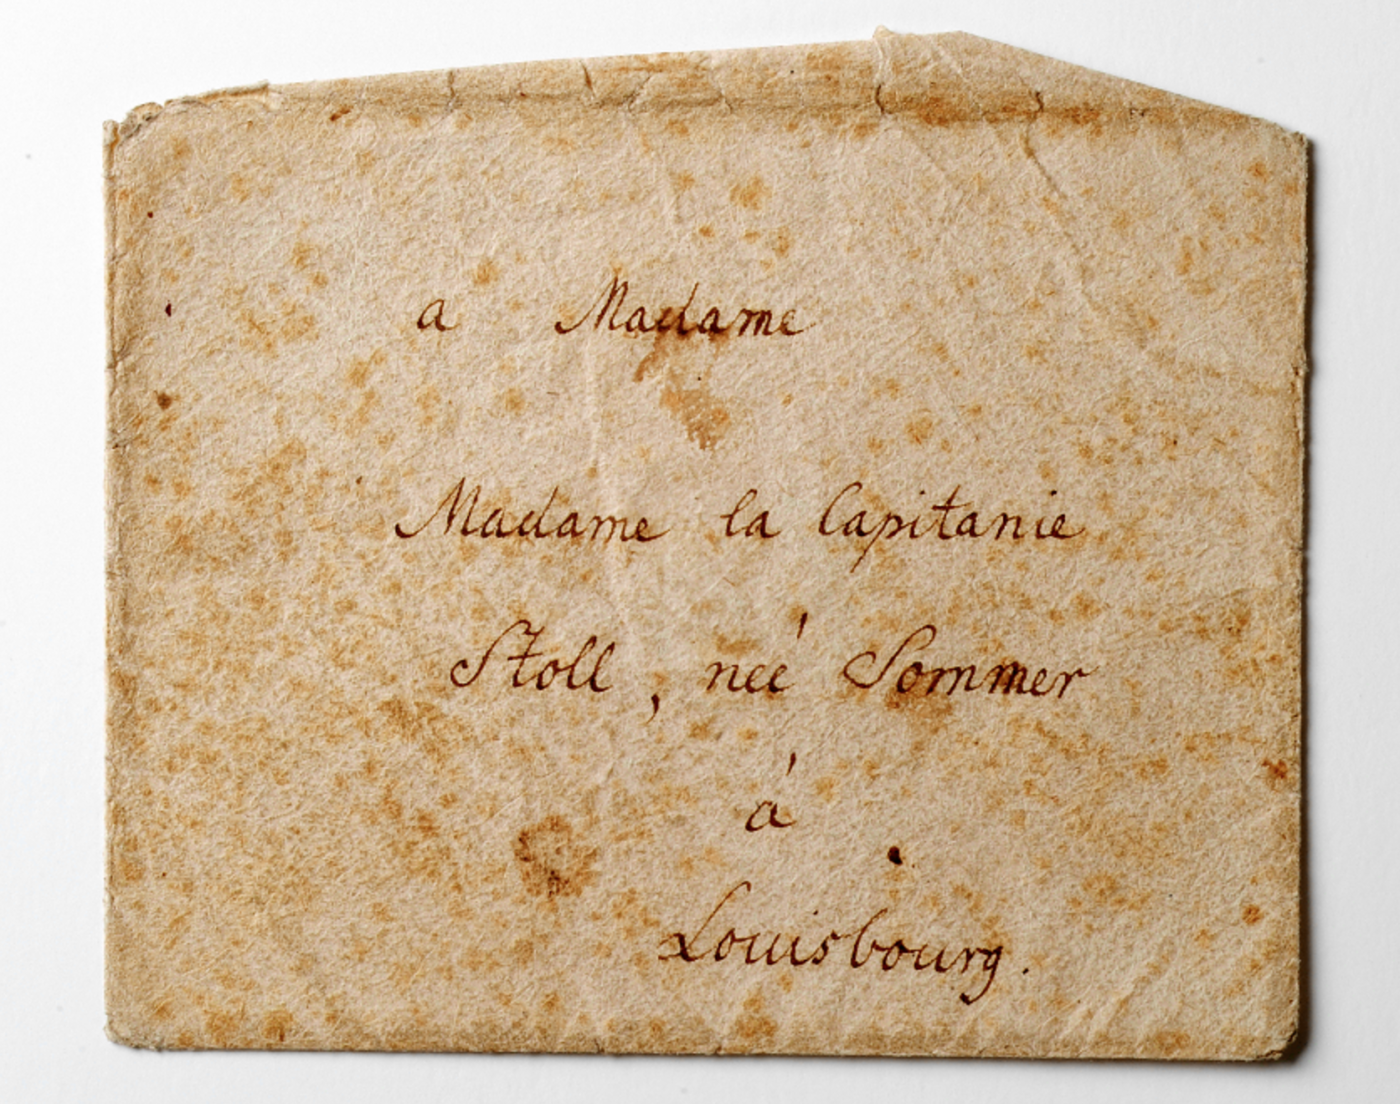 a Madame
Madame la Capitanie
Stoll, neé Sommer
á
Louisbourg.